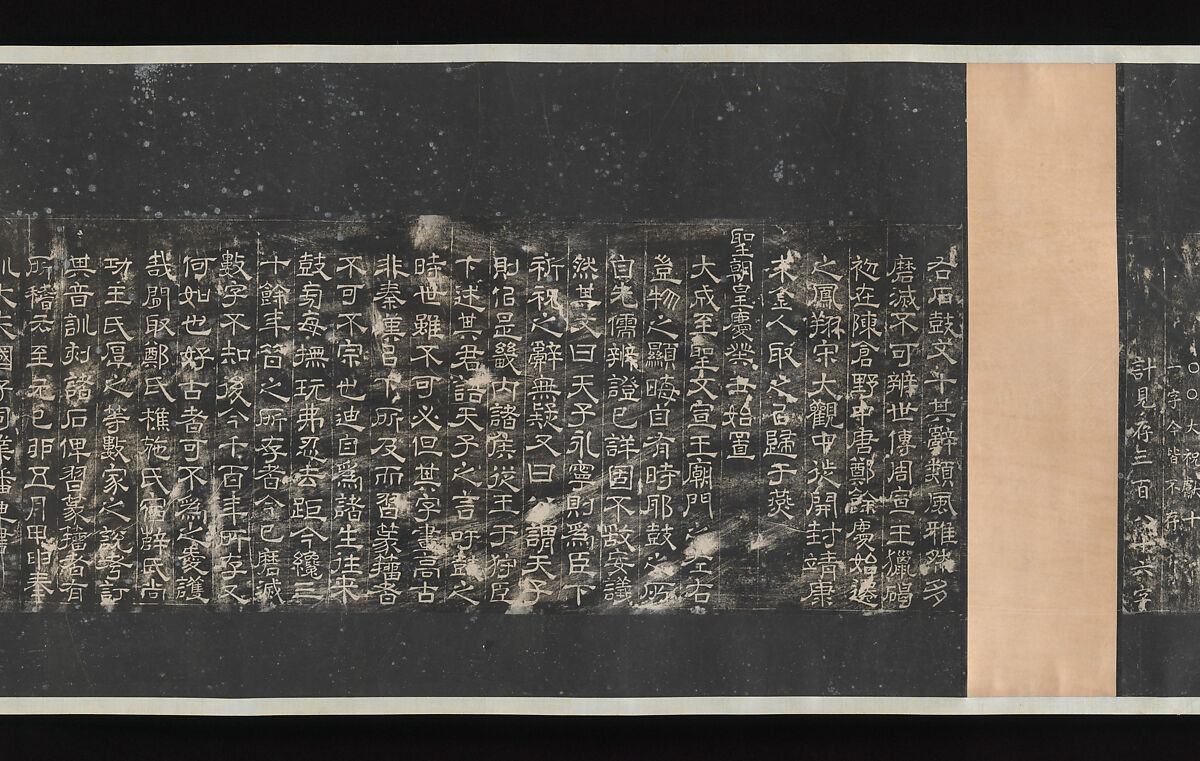 一字今皆不存
計見存三百八十六字
右石鼓文十其辭類風雅然多
磨滅不可辨世傳周宣王獵碣
初在陳倉野中唐鄭餘慶始遷
之鳳翔宋大觀中徙開封靖康
末金人取之以歸于燕
聖朝皇慶癸丑始置
大成至聖文宣王廟門之左右
豈物之顯晦自有時耶鼓之所
自先儒辨證已詳固不敢妄議
然其文曰天子永寧則為臣下
祈祝之辭無疑又曰公謂天子
則侣是畿内諸侯從王于狩臣
下述其君語天子之言吁鼓之
時世雖不可必但其字畫高古
非秦漢以下所及而習篆籀者
不可不宗也迪自為諸生往来
鼓旁每撫玩弗忍去距今纔三
十餘年昔之所存者今已磨滅
數字不知後今千百年所存又
何如也好古者可不為之愛護
哉閒取鄭氏樵施氏宿薛氏尚
功王氏厚之等數家之說考訂
其音訓刻諸石俾習篆籀者有
所稽云至元己卯五月甲申奉
訓大夫國子司業潘迪書